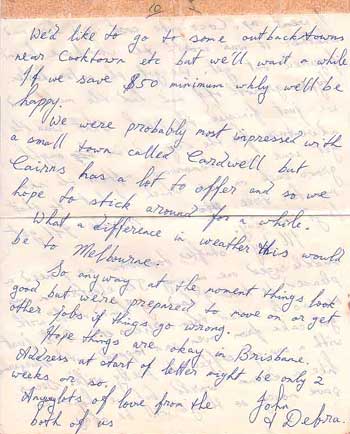 6
We'd like to go to some outback towns
near Cooktown etc but we'll wait a while
If we save $50 minimum whly we'll be
happy.
We were probably most impressed with
a small town called Cardwell but
Cairns has a lot to offer and so we
hope to stick around for a while.
What a difference in weather this would
be to Melbourne.
So anyway at the moment things look
good but we're prepared to move on or get
other jobs if things go wrong.
Hope things are okay in Brisbane.
Address at start of letter might be only 2
weeks or so.
Anyway lots of love from the
both of us
John
& Debra.